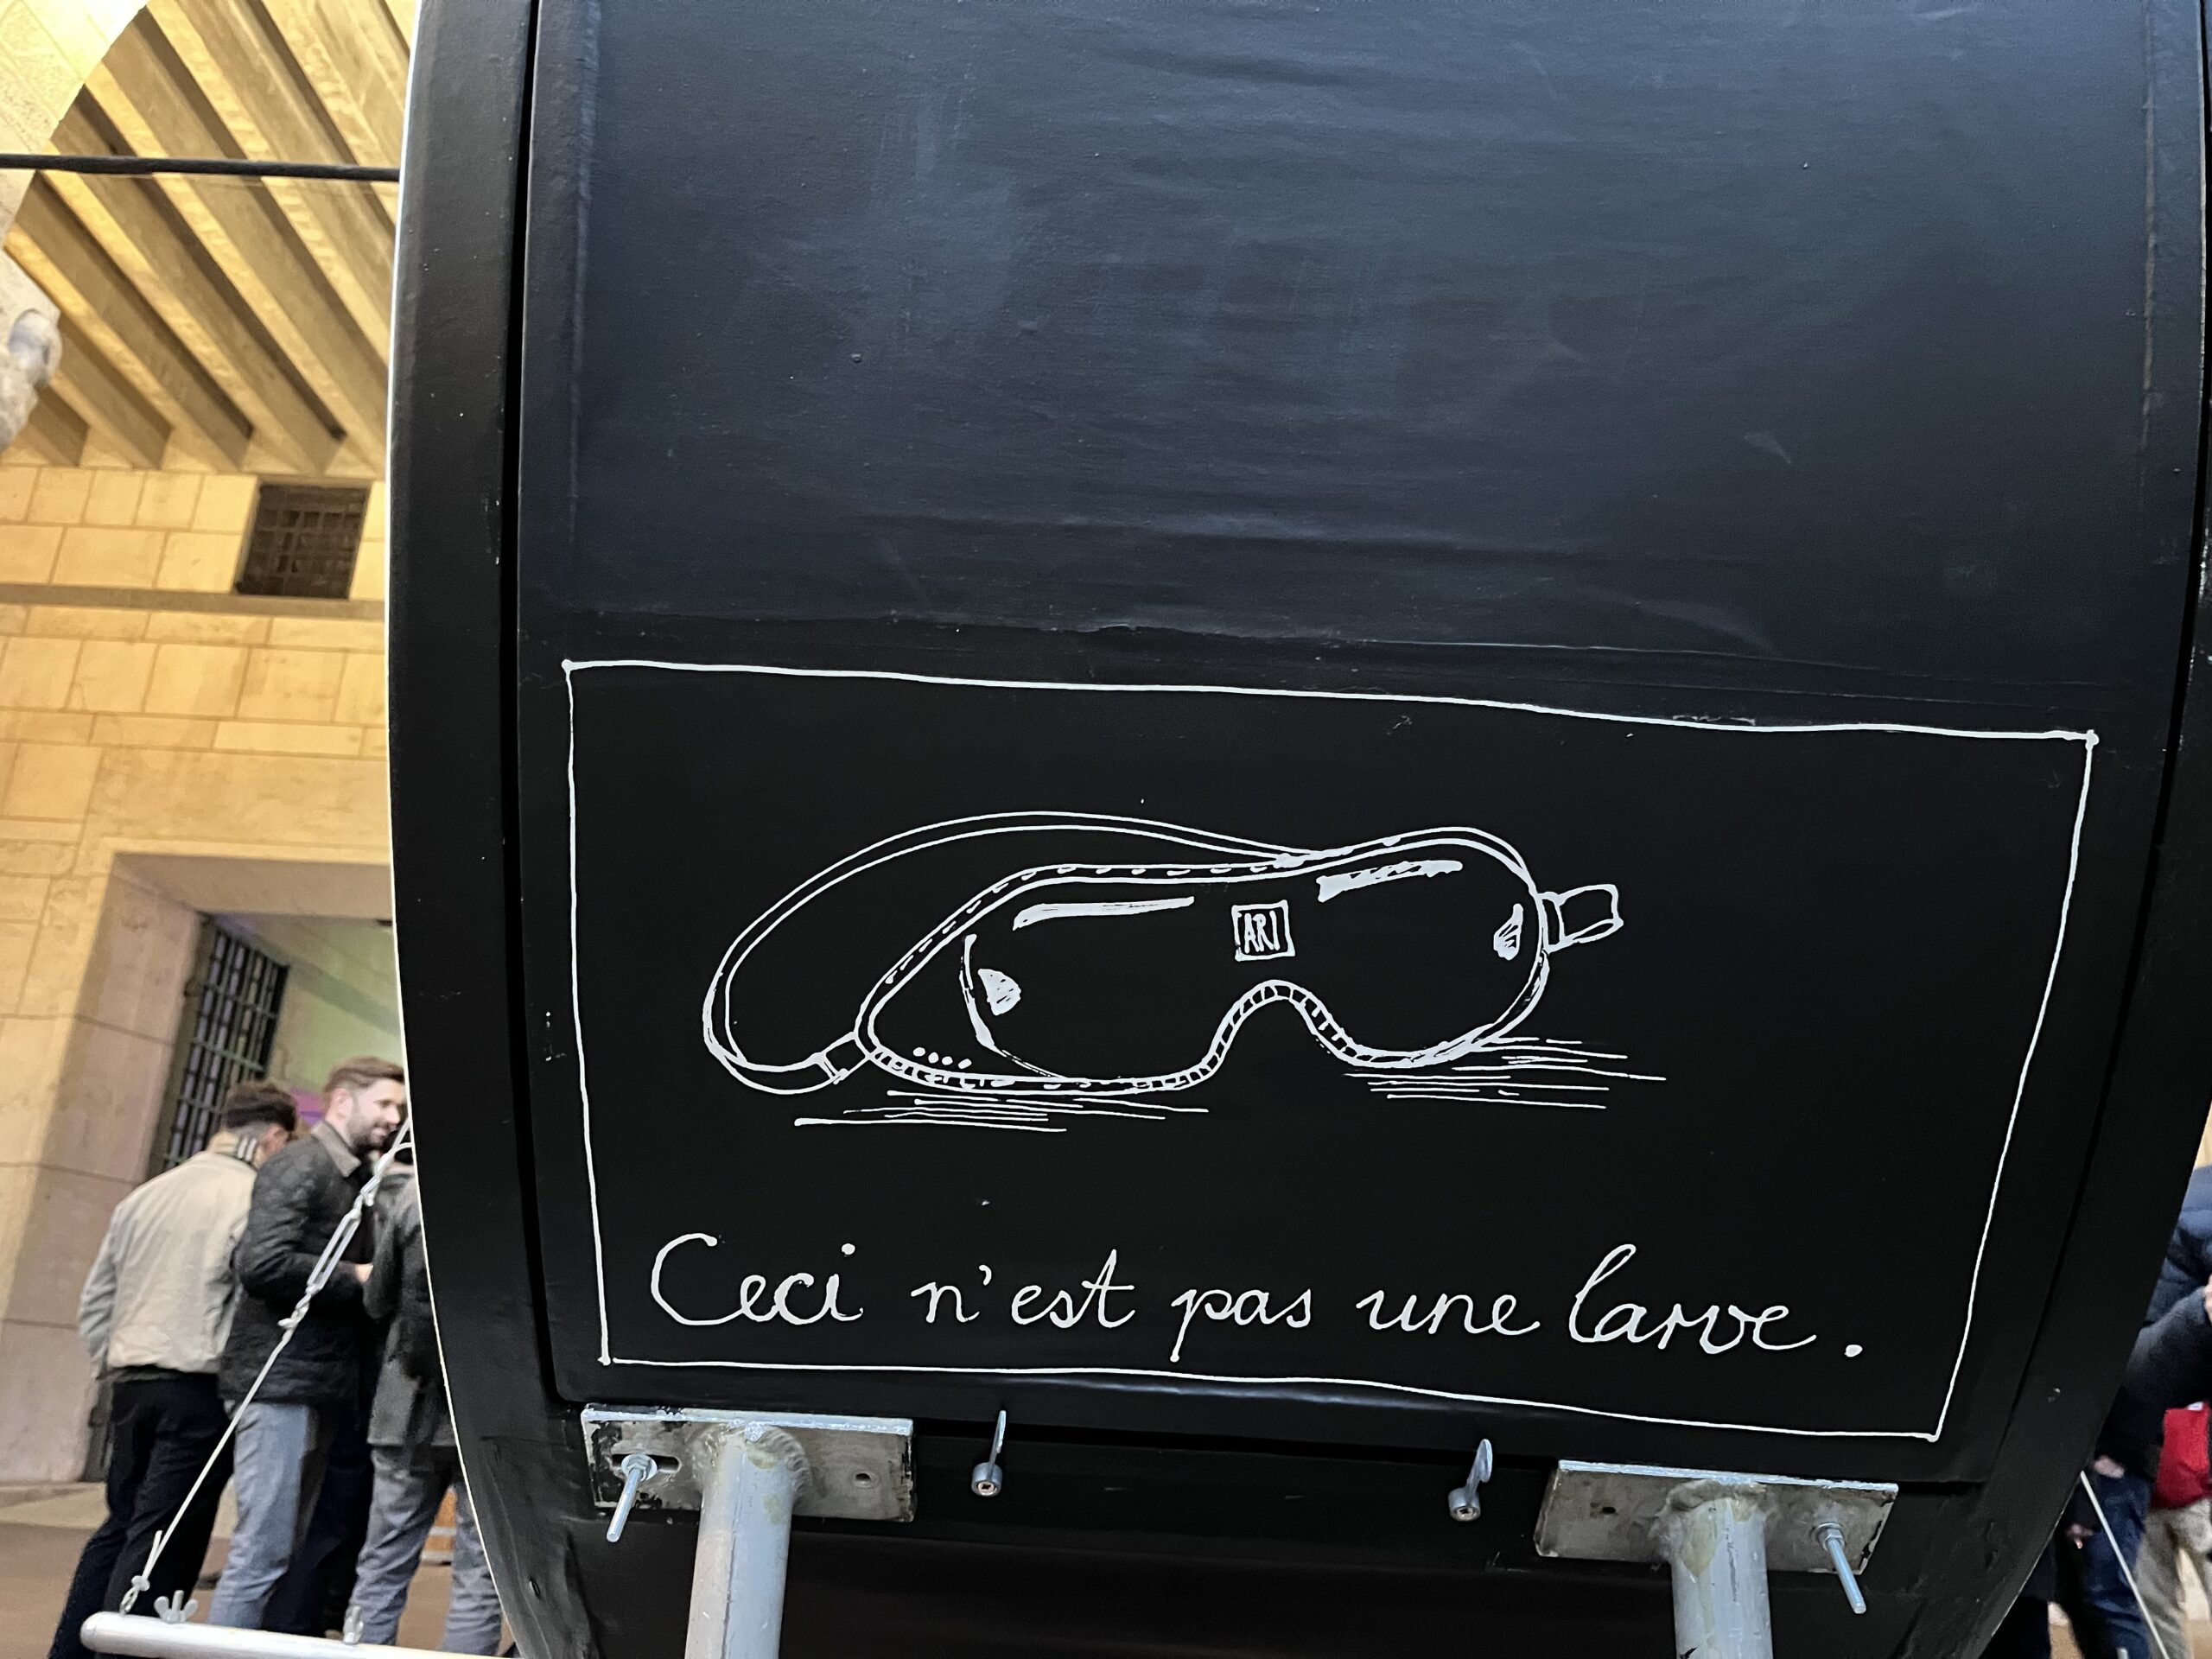 ARI
Ceci n'est pas une larve.